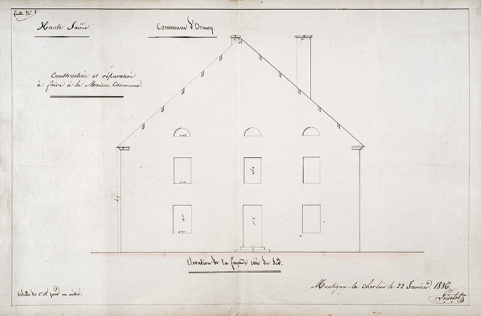 feuille N° 5
Haute Saône
Commune d'Ormoy.
Construction et réparation
à faire à la Maison Commune.
Elévation de la façade côté du Sud.
Echelle de 0.01 pour un mètre.
Montigny-les-cherlieu le 22 Janvier 1836